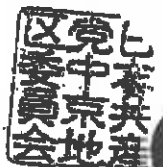 日本共産
党中京地
区委員会